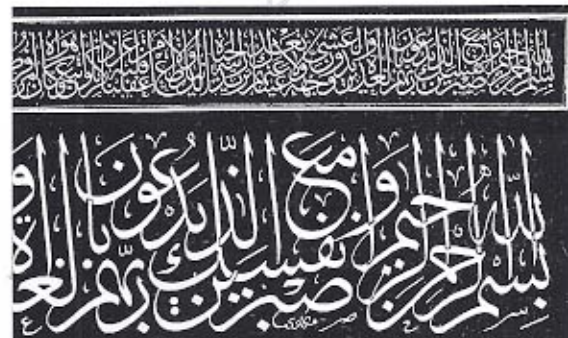 بسم الله الرحمن الرحيم واصبر نفسك مع الذين يدعون ربهم بالغداوة والعشي يريدون وجهه ولا تعد عيناك عنهم تريد زينة الحياة الدنيا ولا تطع من أغفلنا قلبه عن ذكرنا واتبع هواه وكان أمره
بسم الله الرحمن الرحيم واصبر نفسك مع الذين يدعون ربهم